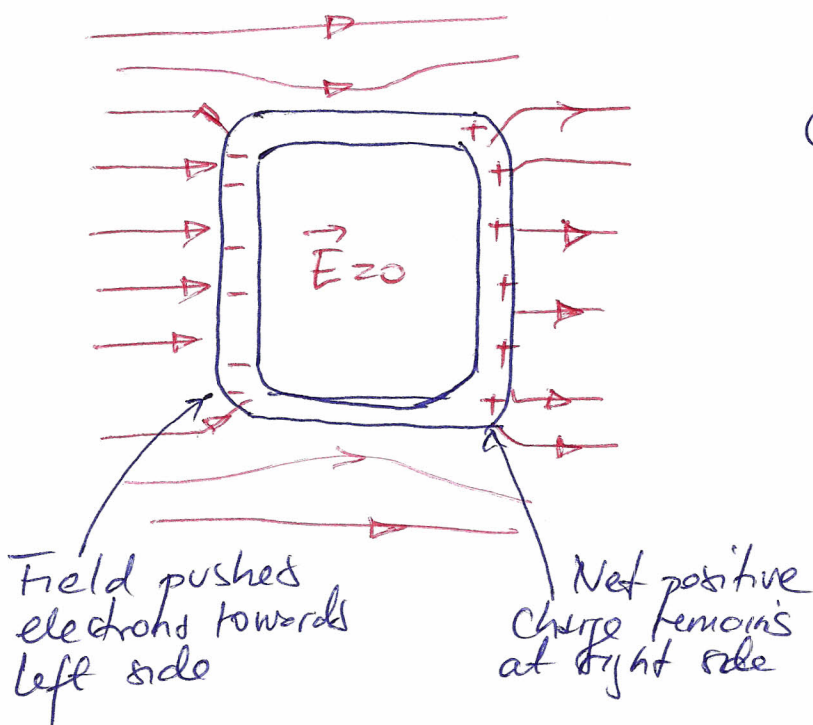 E=0
Field pushes
electrons towards
left side
Net positive
charge remains
at right side